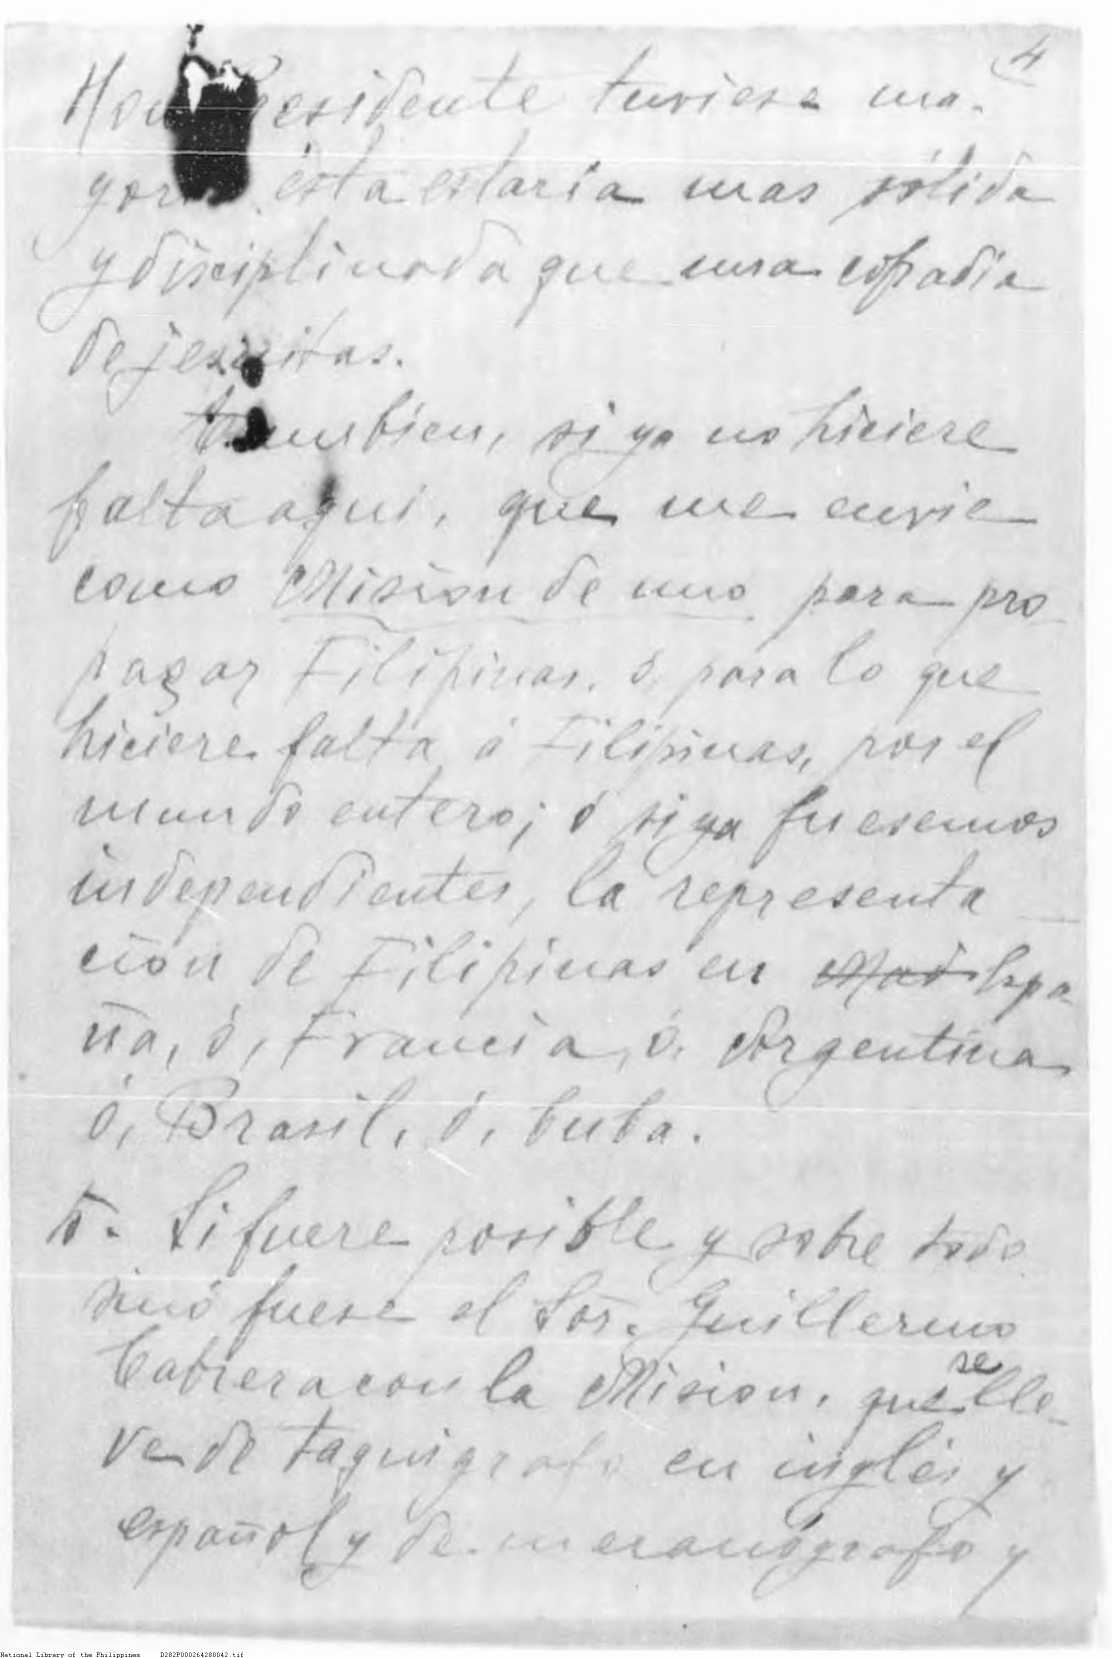 4
Hon. Presidente tuviese ma-
yoría ésta estaria mas sólida
y disciplinada que una cofradia
de jesuitas.
Tambien, si yo no hiciere
falta aqui, que me envie
como Mision de uno para pro-
pagar Filipinas, ó para lo que
hiciere falta á Filipinas, por el
mundo entero; ó si ya fuesemos
independientes, la representa
ción de Filipinas en Mad Espa-
ña, ó, Francia, ó, Argentina
ó, Brasil, ó, Cuba.
5. Si fuere posible y sobre todo
sinó fuese el Sor. Guillermo
Cabrera con la Mision, que se lle-
ve de taquigrafo en inglés y
español y de mecanógrafo y
National Library of the Philippines D282P000264280042.tif